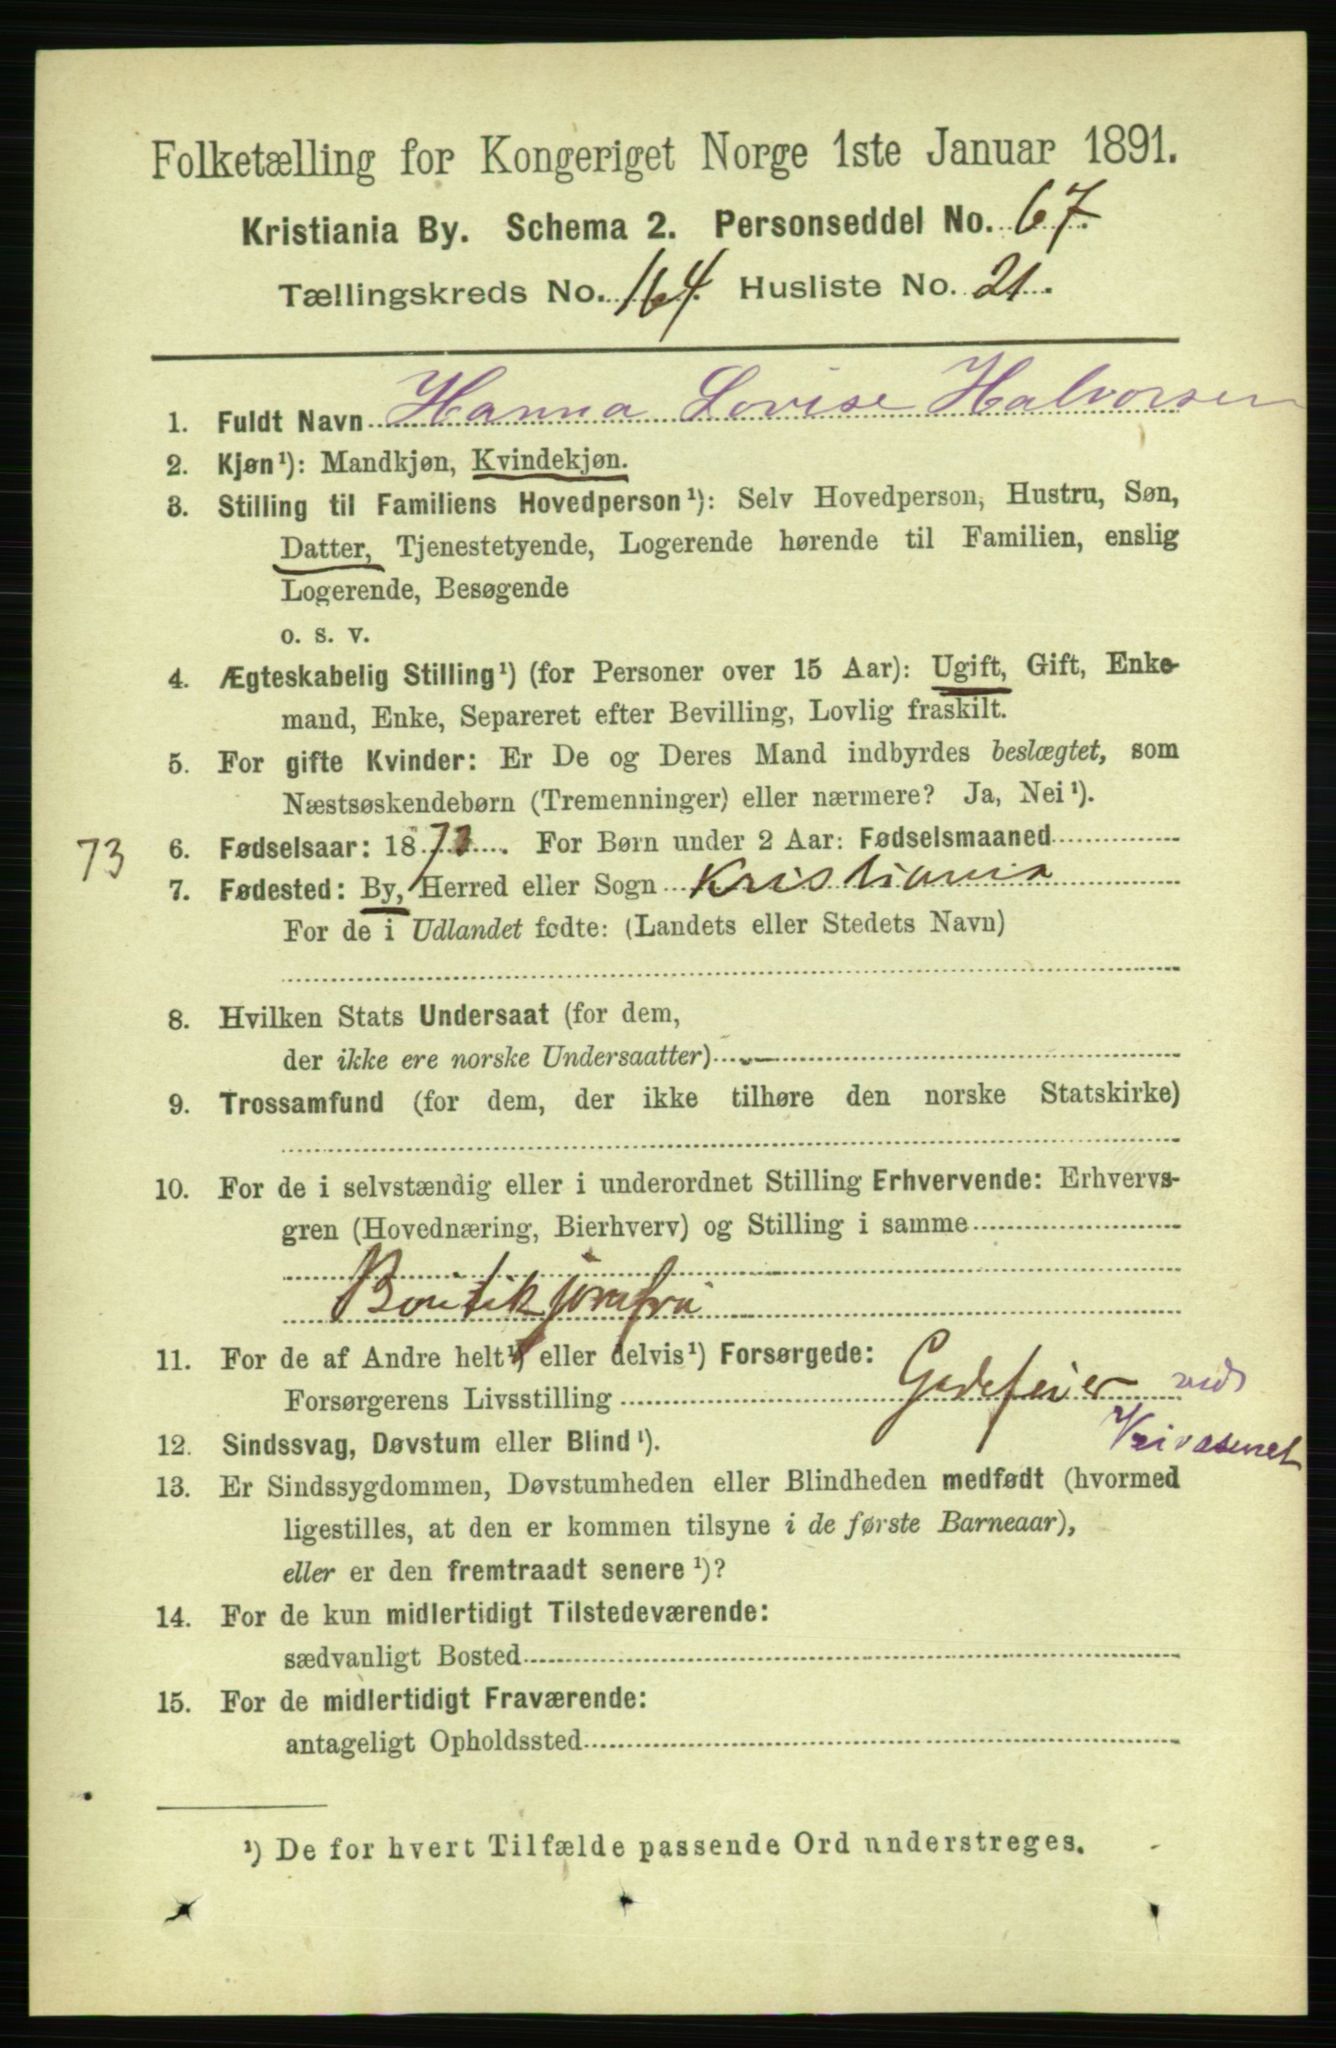 Folketælling for Kongeriget Norge 1ste Januar 1891.
Kristiania By. Schema 2. Personseddel No. 67.
Tællingskreds No. 164. Husliste No. 21.
1. Fuldt Navn Hanna Lovise Halvorsen
2. Kjøn¹): Mandkjøn, Kvindekjøn.
3. Stilling til Familiens Hovedperson¹): Selv Hovedperson, Hustru, Søn,
Datter, Tjenestetyende, Logerende hørende til Familien, enslig
Logerende, Besøgende
o. s. v.
4. Ægteskabelig Stilling¹) (for Personer over 15 Aar): Ugift, Gift, Enke-
mand, Enke, Separeret efter Bevilling, Lovlig fraskilt.
5. For gifte Kvinder: Er De og Deres Mand indbyrdes beslægtet, som
Næstsøskendebørn (Tremenninger) eller nærmere? Ja, Nei¹).
73 6. Fødselsaar: 1873. For Børn under 2 Aar: Fødselsmaaned
7. Fødested: By, Herred eller Sogn Kristiania
For de i Udlandet fødte: (Landets eller Stedets Navn)
8. Hvilken Stats Undersaat (for dem,
der ikke ere norske Undersaatter)
9. Trossamfund (for dem, der ikke tilhøre den norske Statskirke)
10. For de i selvstændig eller i underordnet Stilling Erhvervende: Erhvervs-
gren (Hovednæring, Bierhverv) og Stilling i samme
Boutikjomfru
11. For de af Andre helt¹) eller delvis¹) Forsørgede:
Forsørgerens Livsstilling Gadefeier ved
Veivæsenet
12. Sindssvag, Døvstum eller Blind¹).
13. Er Sindssygdommen, Døvstumheden eller Blindheden medfødt (hvormed
ligestilles, at den er kommen tilsyne i de første Barneaar),
eller er den fremtraadt senere¹)?
14. For de kun midlertidigt Tilstedeværende:
sædvanligt Bosted
15. For de midlertidigt Fraværende:
antageligt Opholdssted
¹) De for hvert Tilfælde passende Ord understreges.